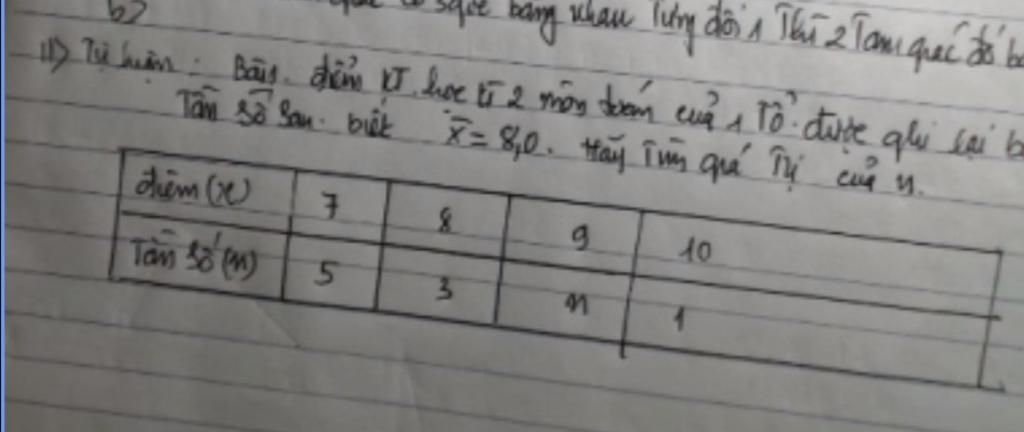 b>
bằng nhau Từng đôi 1 Thì 2 Tam giác đó
II) Tự luận: Bài 1. điểm KT học kì 2 môn toán của 1 Tổ được ghi lại
Tần số sau. biết x̄ = 8,0. Hãy Tìm giá Trị của n.
điểm (x) 7 8 9 10
Tần số (n) 5 3 n 1